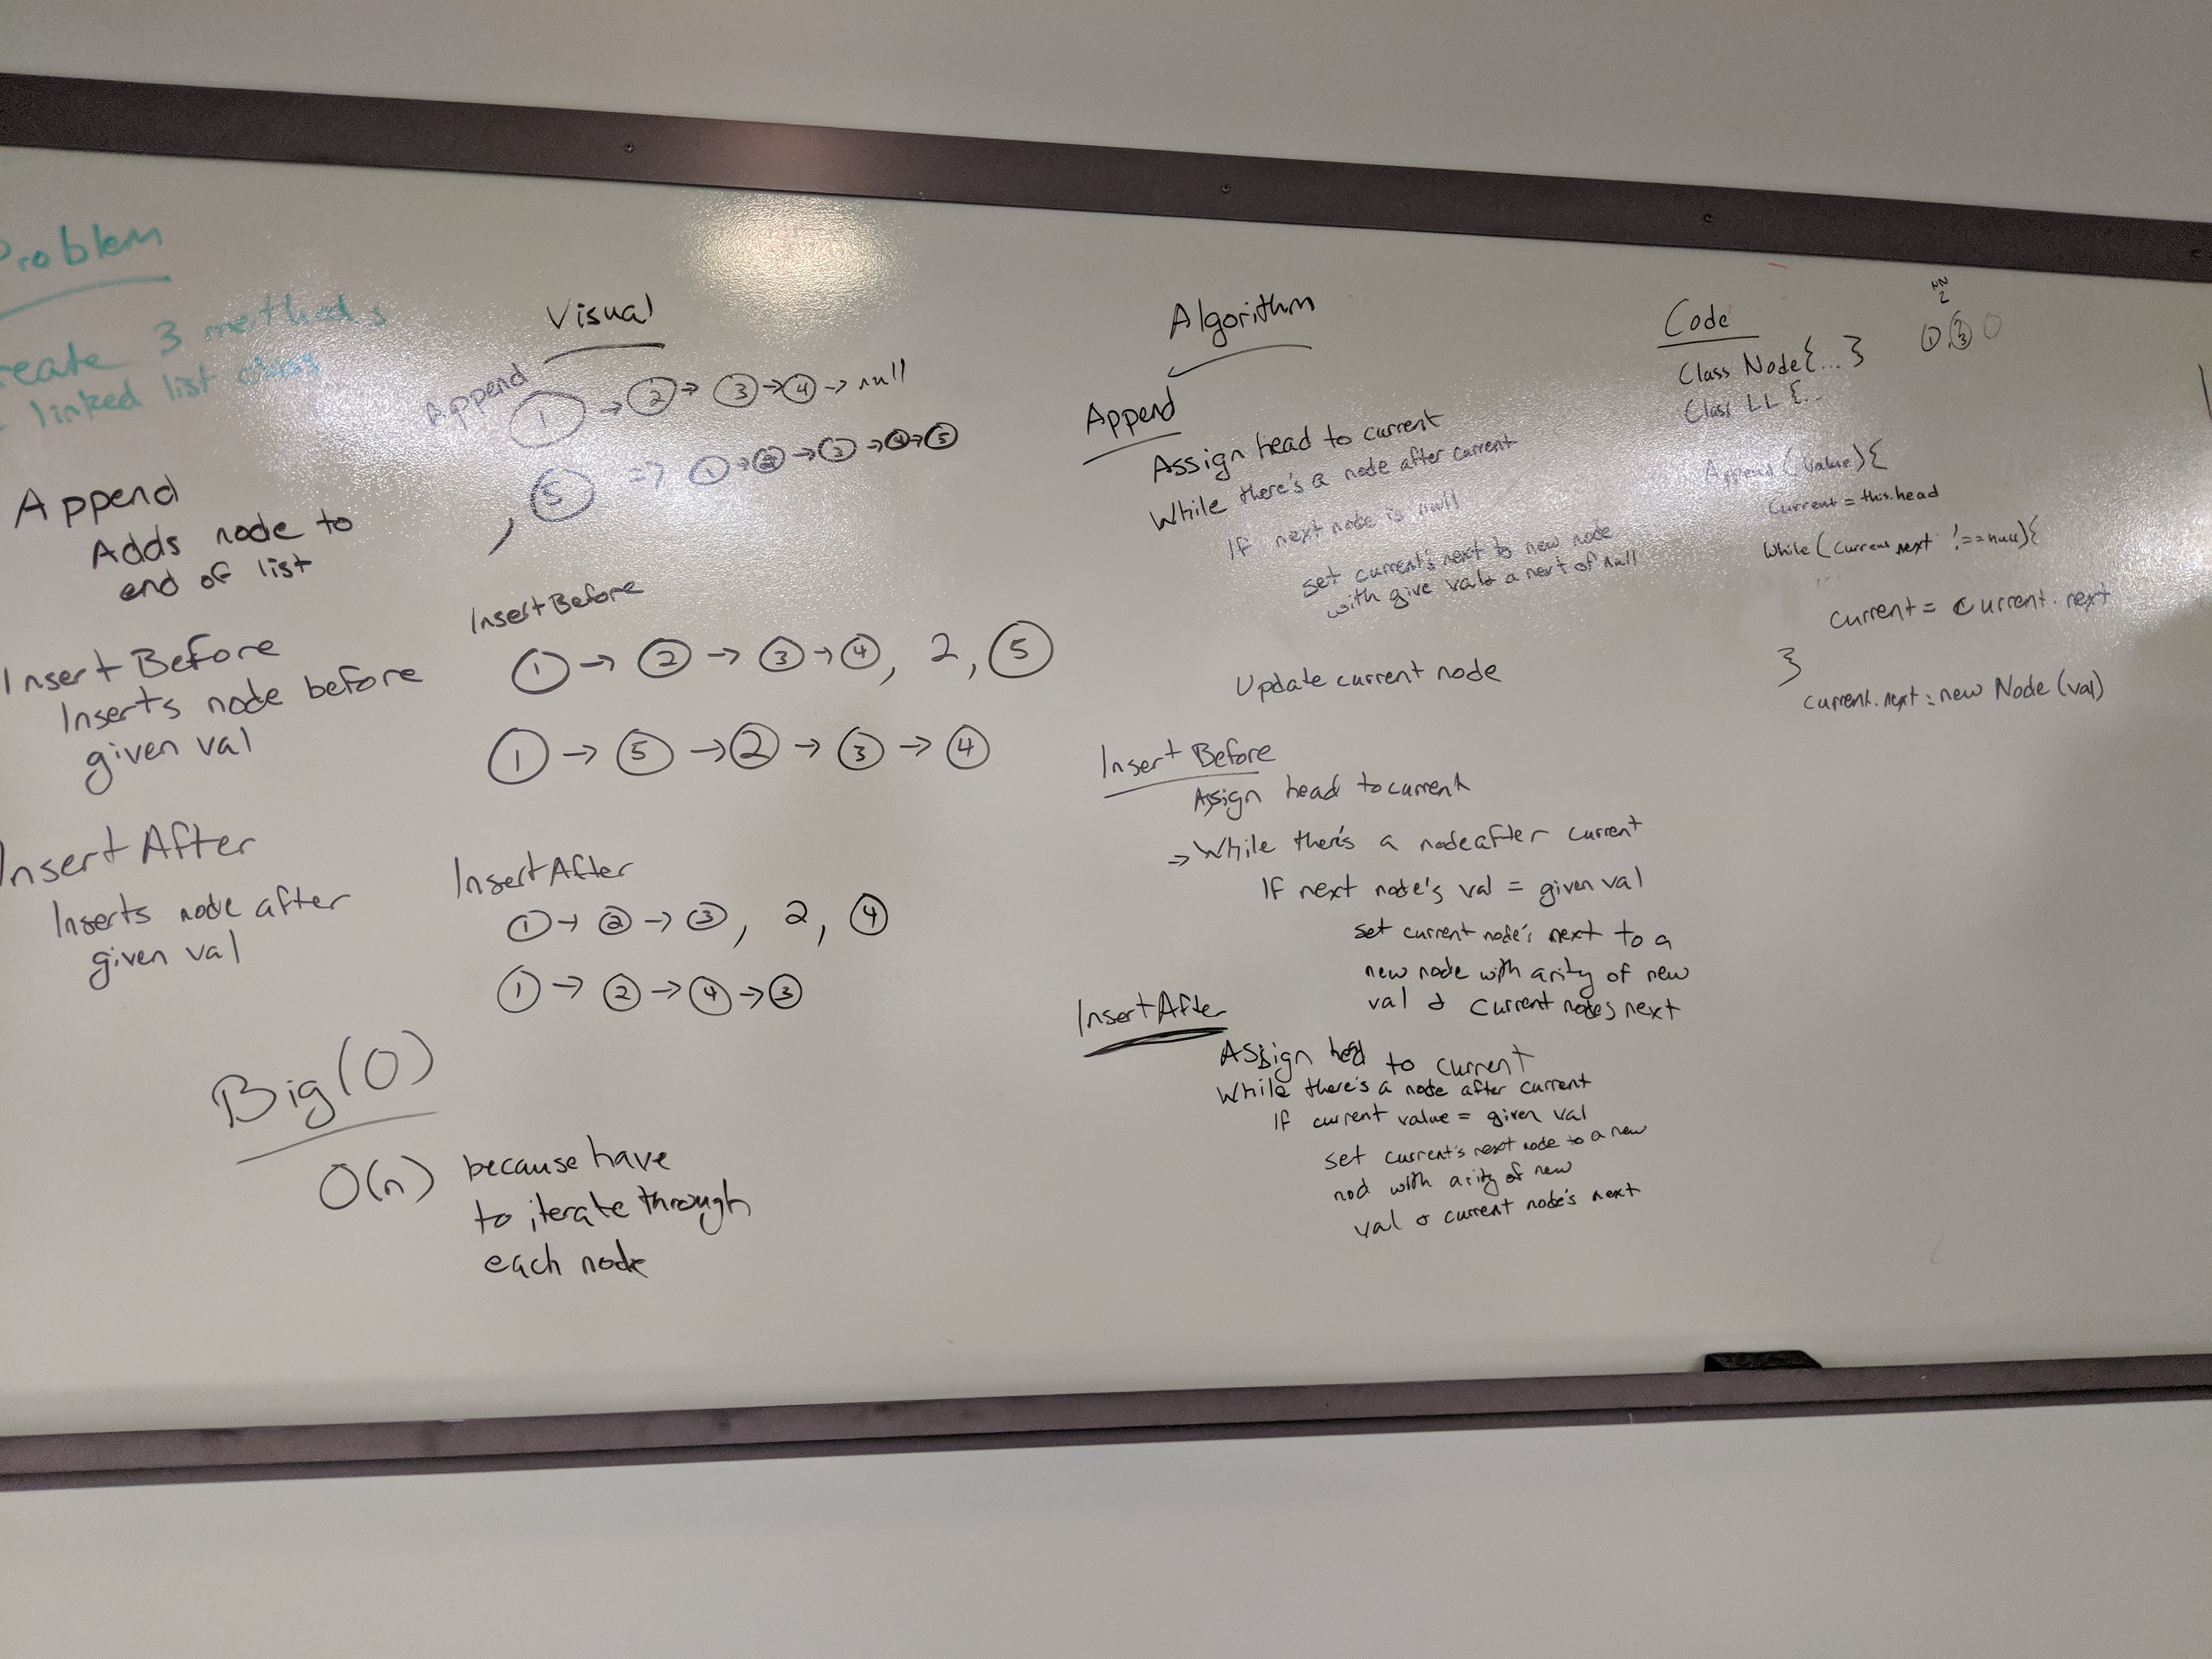 Problem
Create 3 methods
linked list class
Append
Adds node to
end of list
Insert Before
Inserts node before
given val
Insert After
Inserts node after
given val
Big(O)
O(n) because have
to iterate through
each node
Visual
Append
1 → 2 → 3 → 4 → null
, 5 => 1 → 2 → 3 → 4 → 5
InsertBefore
1 → 2 → 3 → 4, 2, 5
1 → 5 → 2 → 3 → 4
InsertAfter
1 → 2 → 3, 2, 4
1 → 2 → 4 → 3
Algorithm
Append
Assign head to current
While there's a node after current
If next node is null
set current's next to new node
with give val & a next of null
Update current node
Insert Before
Assign head to current
→ While there's a node after current
If next node's val = given val
set current node's next to a
new node with arity of new
val & current nodes next
InsertAfter
Assign head to current
While there's a node after current
If current value = given val
set current's next node to a new
nod with arity of new
val & current node's next
Code
Class Node{...}
Class LL {..
NN
2
1 3
Append (value){
Current = this.head
While (current.next !== null){
current = current.next
}
current.next = new Node (val)